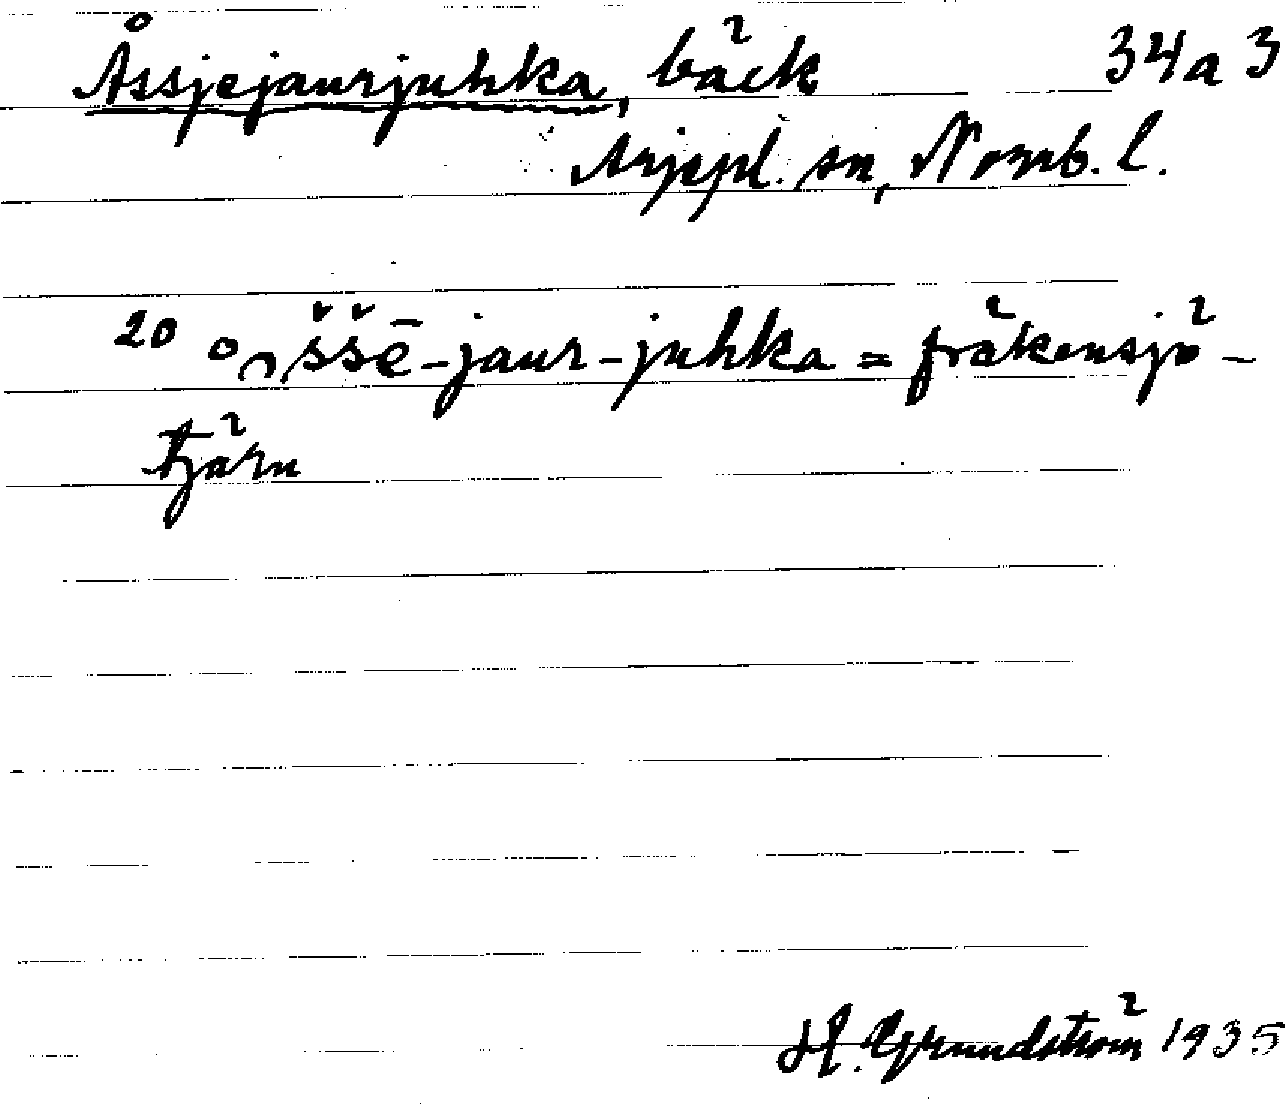 Åssjejaurjuhka, bäck 34a 3
Arjepl. sn, Norrb. l.
20 o̭ššē-jaur-juhka = fräkensjö-
tjärn
H. Grundström 1935